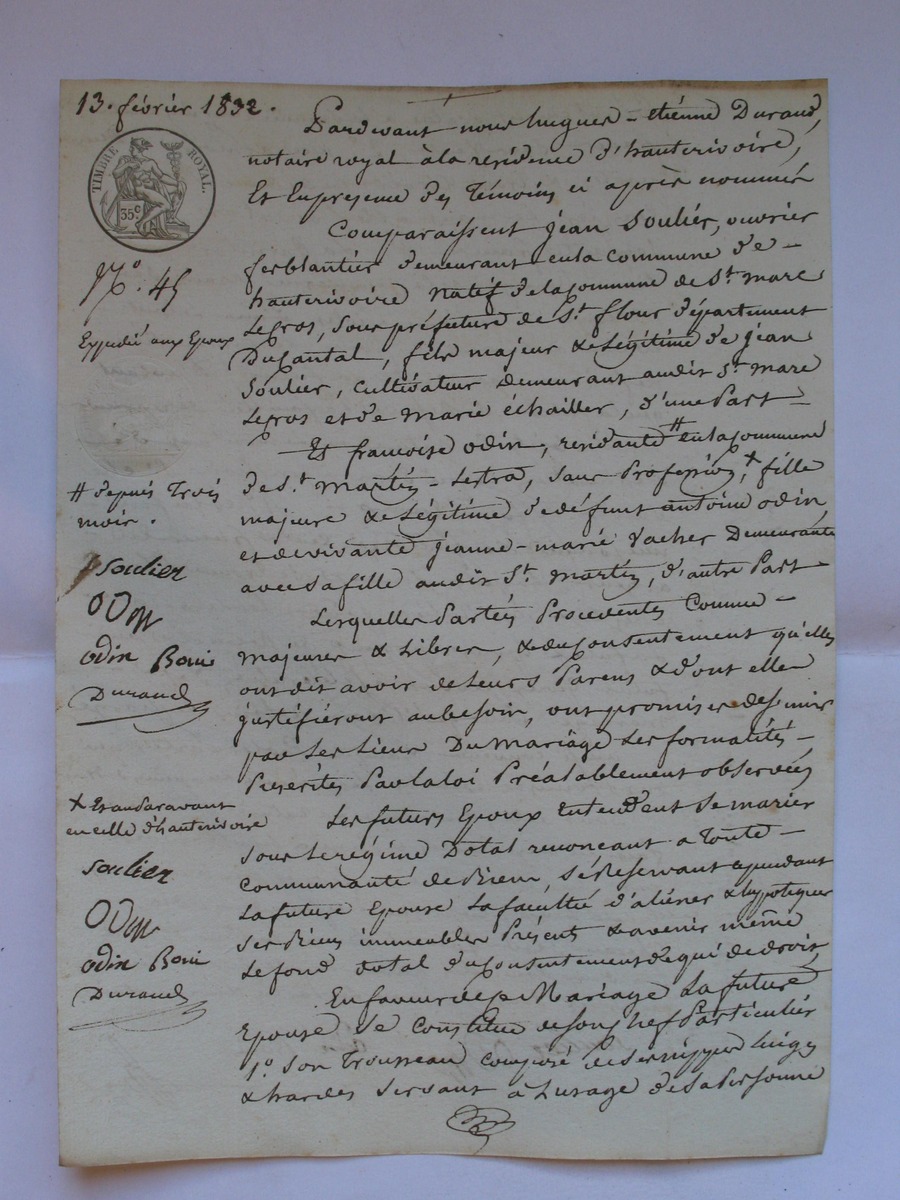 13. février 1832.
TIMBRE ROYAL.
35c
N°. 45
Expedié aux Epoux
Pardevant nous hugues-etiénne Durand,
notaire royal à la residence d'hauterivoire,
Et En presence des Témoins ci après nommés
Comparaissent jéan Souliér, ouvriér
ferblantiér demeurant en la commune de
hauterivoire natif de la Commune de St. marc
Legros, sous préfecture de St. flour département
Du Cantal, fils majeur & Légitime de jéan
Souliér, cultivateur demeurant audit St. marc
Legros et de Marie échailler, d'une Part
Et françoise odin, residante # en la Commune
de St. Martin-Lestra, sans Profession, x fille
majeure & Légitime de défunt antoine odin
et de vivante jeanne-marie Vacher Demeurante
avec sa fille audit St. martin, d'autre Part
Lesquelles Parties Procedentes Comme
majeures & Libres, & du Consentement qu'elles
ont dit avoir de Leurs Parens & dont elles
justifiéront au besoin, ont promis se de s'unir
par Les Liens Du Mariage Les formalités
Prescrites Par la loi Préalablement observées
Les futurs Epoux Entendent Se marier
Sous Le régime Dotal renoncant a Toute
Communauté de Biens, Se Réservant cependant
La future Epouse La faculté d'aliéner & hypotéquer
Ses Biens immeubles Présents & avenir même
Le fond dotal du Consentement de qui de droit,
En faveur de ce Mariage La future
Epouse Se Constitue de Son Chef Particuliér
1° Son Trousseau Composé de Ses nippes Linges
& hardes Servant à L'usage de Sa Personne
# depuis Trois
mois.
Soulier
ODin
odin Boui
Durand
x Et auparavant
en celle d'hauterivoire
Soulier
ODin
odin Boui
Durand